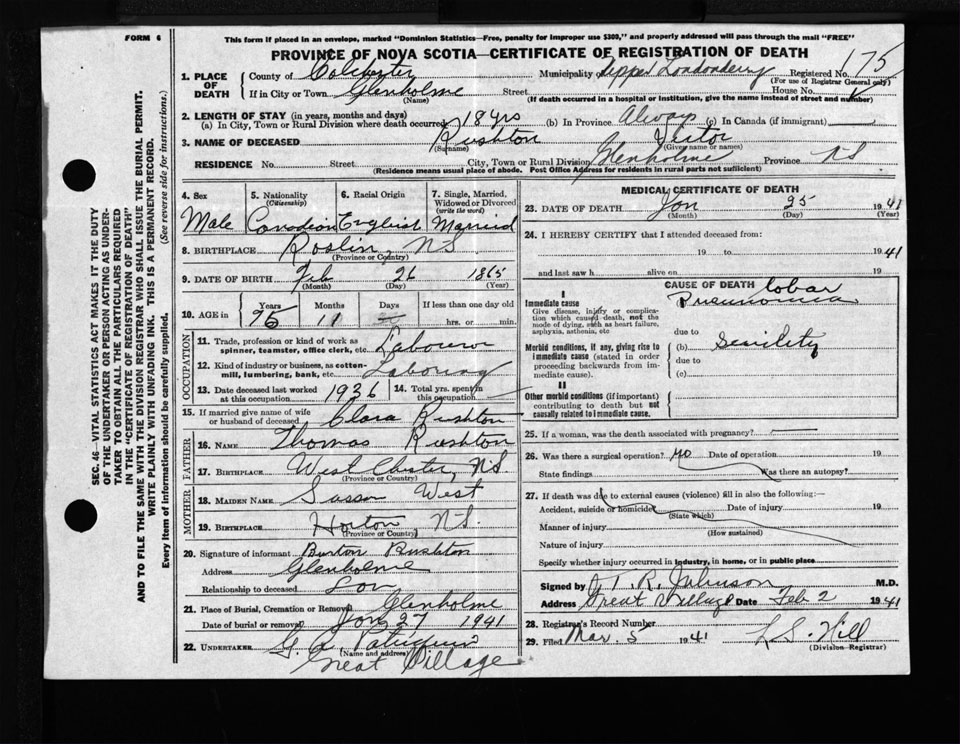 FORM 6
This form if placed in an envelope, marked "Dominion Statistics—Free, penalty for improper use $300," and properly addressed will pass through the mail "FREE"
PROVINCE OF NOVA SCOTIA—CERTIFICATE OF REGISTRATION OF DEATH
1. PLACE OF DEATH County of Colchester Municipality of Upper Londonderry Registered No. 175
(For use of Registrar General only)
If in City or Town Glenholme Street House No.
(Name) (If death occurred in a hospital or institution, give the name instead of street and number)
2. LENGTH OF STAY (in years, months and days)
(a) In City, Town or Rural Division where death occurred 18 yrs (b) In Province Always (c) In Canada (if immigrant)
3. NAME OF DECEASED Rushton
(Surname) (Given name or names)
RESIDENCE No. Street City, Town or Rural Division Glenholme Province NS
(Residence means usual place of abode. Post Office Address for residents in rural parts not sufficient)
4. Sex 5. Nationality (Citizenship) 6. Racial Origin 7. Single, Married, Widowed or Divorced (write the word)
Male Canadian English Married
8. BIRTHPLACE Roslin, NS
(Province or Country)
9. DATE OF BIRTH Feb 26 1865
(Month) (Day) (Year)
10. AGE in Years Months Days If less than one day old
75 11 hrs. or min.
OCCUPATION
11. Trade, profession or kind of work as spinner, teamster, office clerk, etc. Labourer
12. Kind of industry or business, as cotton-mill, lumbering, bank, etc. Laboring
13. Date deceased last worked at this occupation 1936 14. Total yrs. spent in this occupation
15. If married give name of wife or husband of deceased Clara Rushton
FATHER
16. NAME Thomas Rushton
17. BIRTHPLACE West Chester, NS.
(Province or Country)
MOTHER
18. MAIDEN NAME West
19. BIRTHPLACE Horton NS.
(Province or Country)
20. Signature of informant Burton Rushton
Address Glenholme
Relationship to deceased
21. Place of Burial, Cremation or Removal Glenholme
Date of burial or removal Jan 27 1941
22. UNDERTAKER G. A. Patriquin
(Name and address)
Great Village
MEDICAL CERTIFICATE OF DEATH
23. DATE OF DEATH Jan 25 1941
(Month) (Day) (Year)
24. I HEREBY CERTIFY that I attended deceased from:
19 to 1941
and last saw h alive on 19
CAUSE OF DEATH lobar
I
Immediate cause Pneumonia
Give disease, injury or complication which caused death, not the mode of dying, such as heart failure, asphyxia, asthenia, etc
due to
Morbid conditions, if any, giving rise to immediate cause (stated in order proceeding backwards from immediate cause).
(b) Senility
due to
(c)
II
Other morbid conditions (if important) contributing to death but not causally related to immediate cause.
25. If a woman, was the death associated with pregnancy?
26. Was there a surgical operation? no Date of operation 19
State findings Was there an autopsy?
27. If death was due to external causes (violence) fill in also the following:—
Accident, suicide or homicide Date of injury 19
(State which)
Manner of injury
(How sustained)
Nature of injury
Specify whether injury occurred in Industry, in home, or in public place
Signed by T. R. Johnson M.D.
Address Great Village Date Feb 2 1941
28. Registrar's Record Number
29. Filed Mar. 5 1941 Hill
(Division Registrar)
SEC. 46—VITAL STATISTICS ACT MAKES IT THE DUTY
OF THE UNDERTAKER OR PERSON ACTING AS UNDER-
TAKER TO OBTAIN ALL THE PARTICULARS REQUIRED
IN THE "CERTIFICATE OF REGISTRATION OF DEATH"
AND TO FILE THE SAME WITH THE DIVISION REGISTRAR WHO SHALL ISSUE THE BURIAL PERMIT.
WRITE PLAINLY WITH UNFADING INK. THIS IS A PERMANENT RECORD.
Every item of information should be carefully supplied. (See reverse side for instructions.)